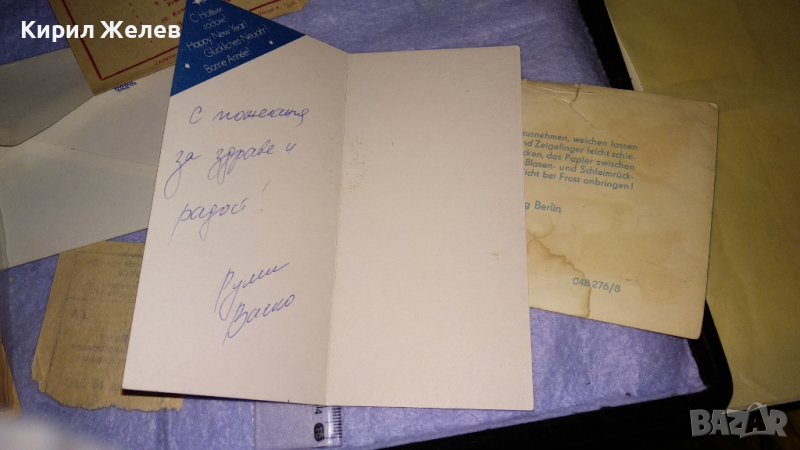 Кирил Желев
С Новым
годом!
Happy New Year!
Glückliches Neujahr!
Bonne Année!
С пожелания
за здраве и
радост!
Руми
Васко
ausnehmen, weichen lassen
und Zeigefinger leicht schie-
cken, das Papier zwischen
Blasen- und Schleimrück-
icht bei Frost anbringen!
g Berlin
048 276/8
BAZAR